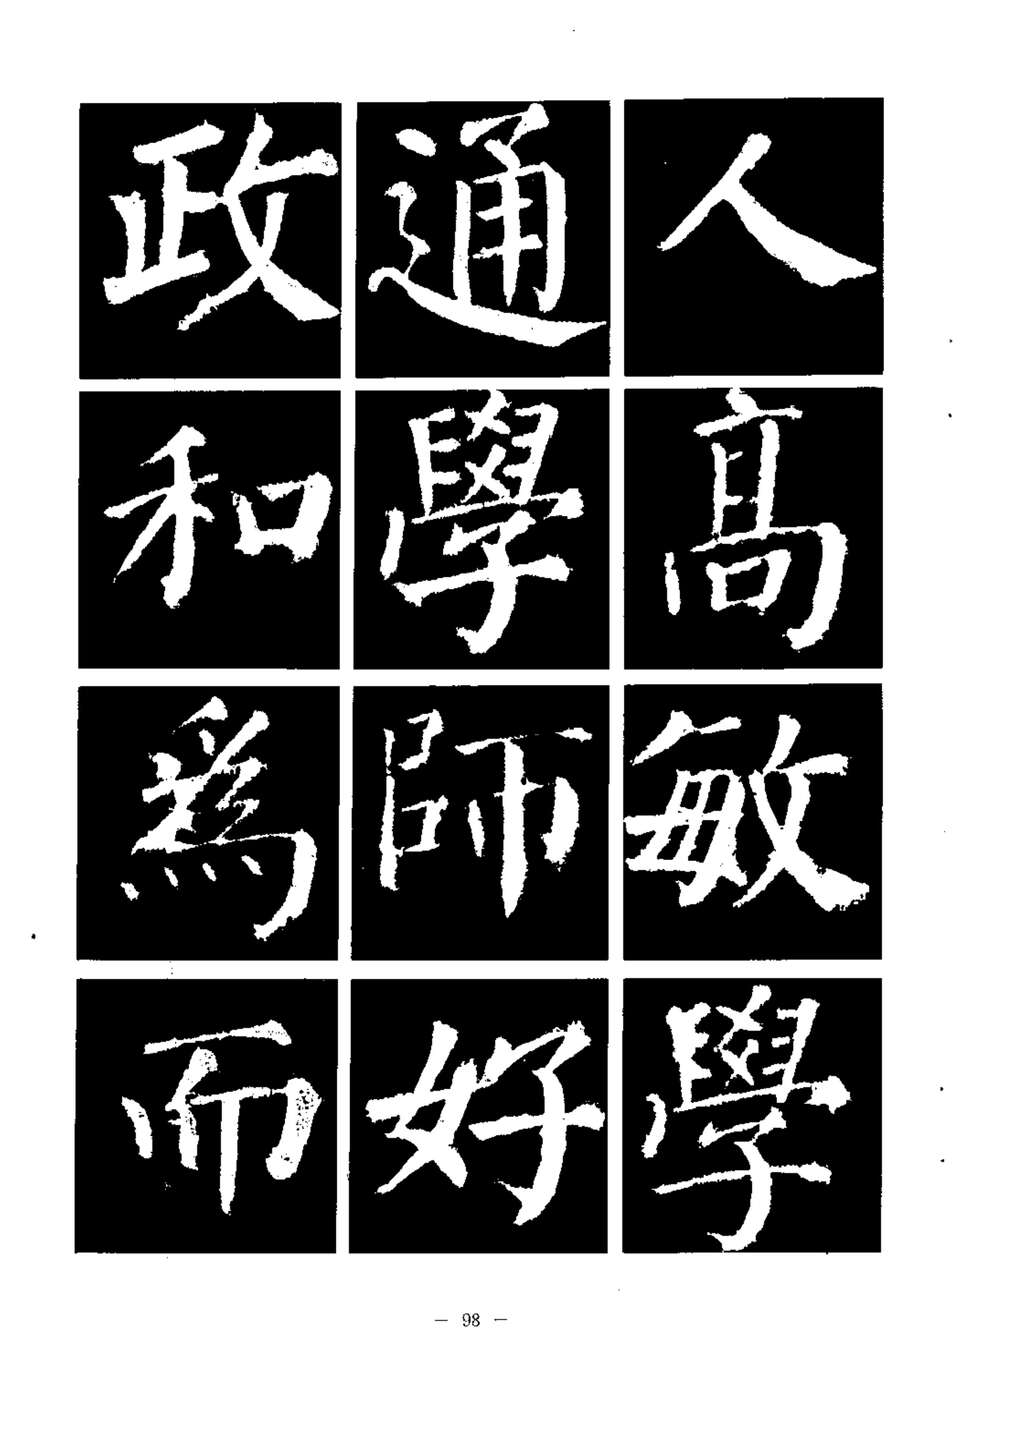 政通人
和學高
爲師敏
而好學
— 98 —